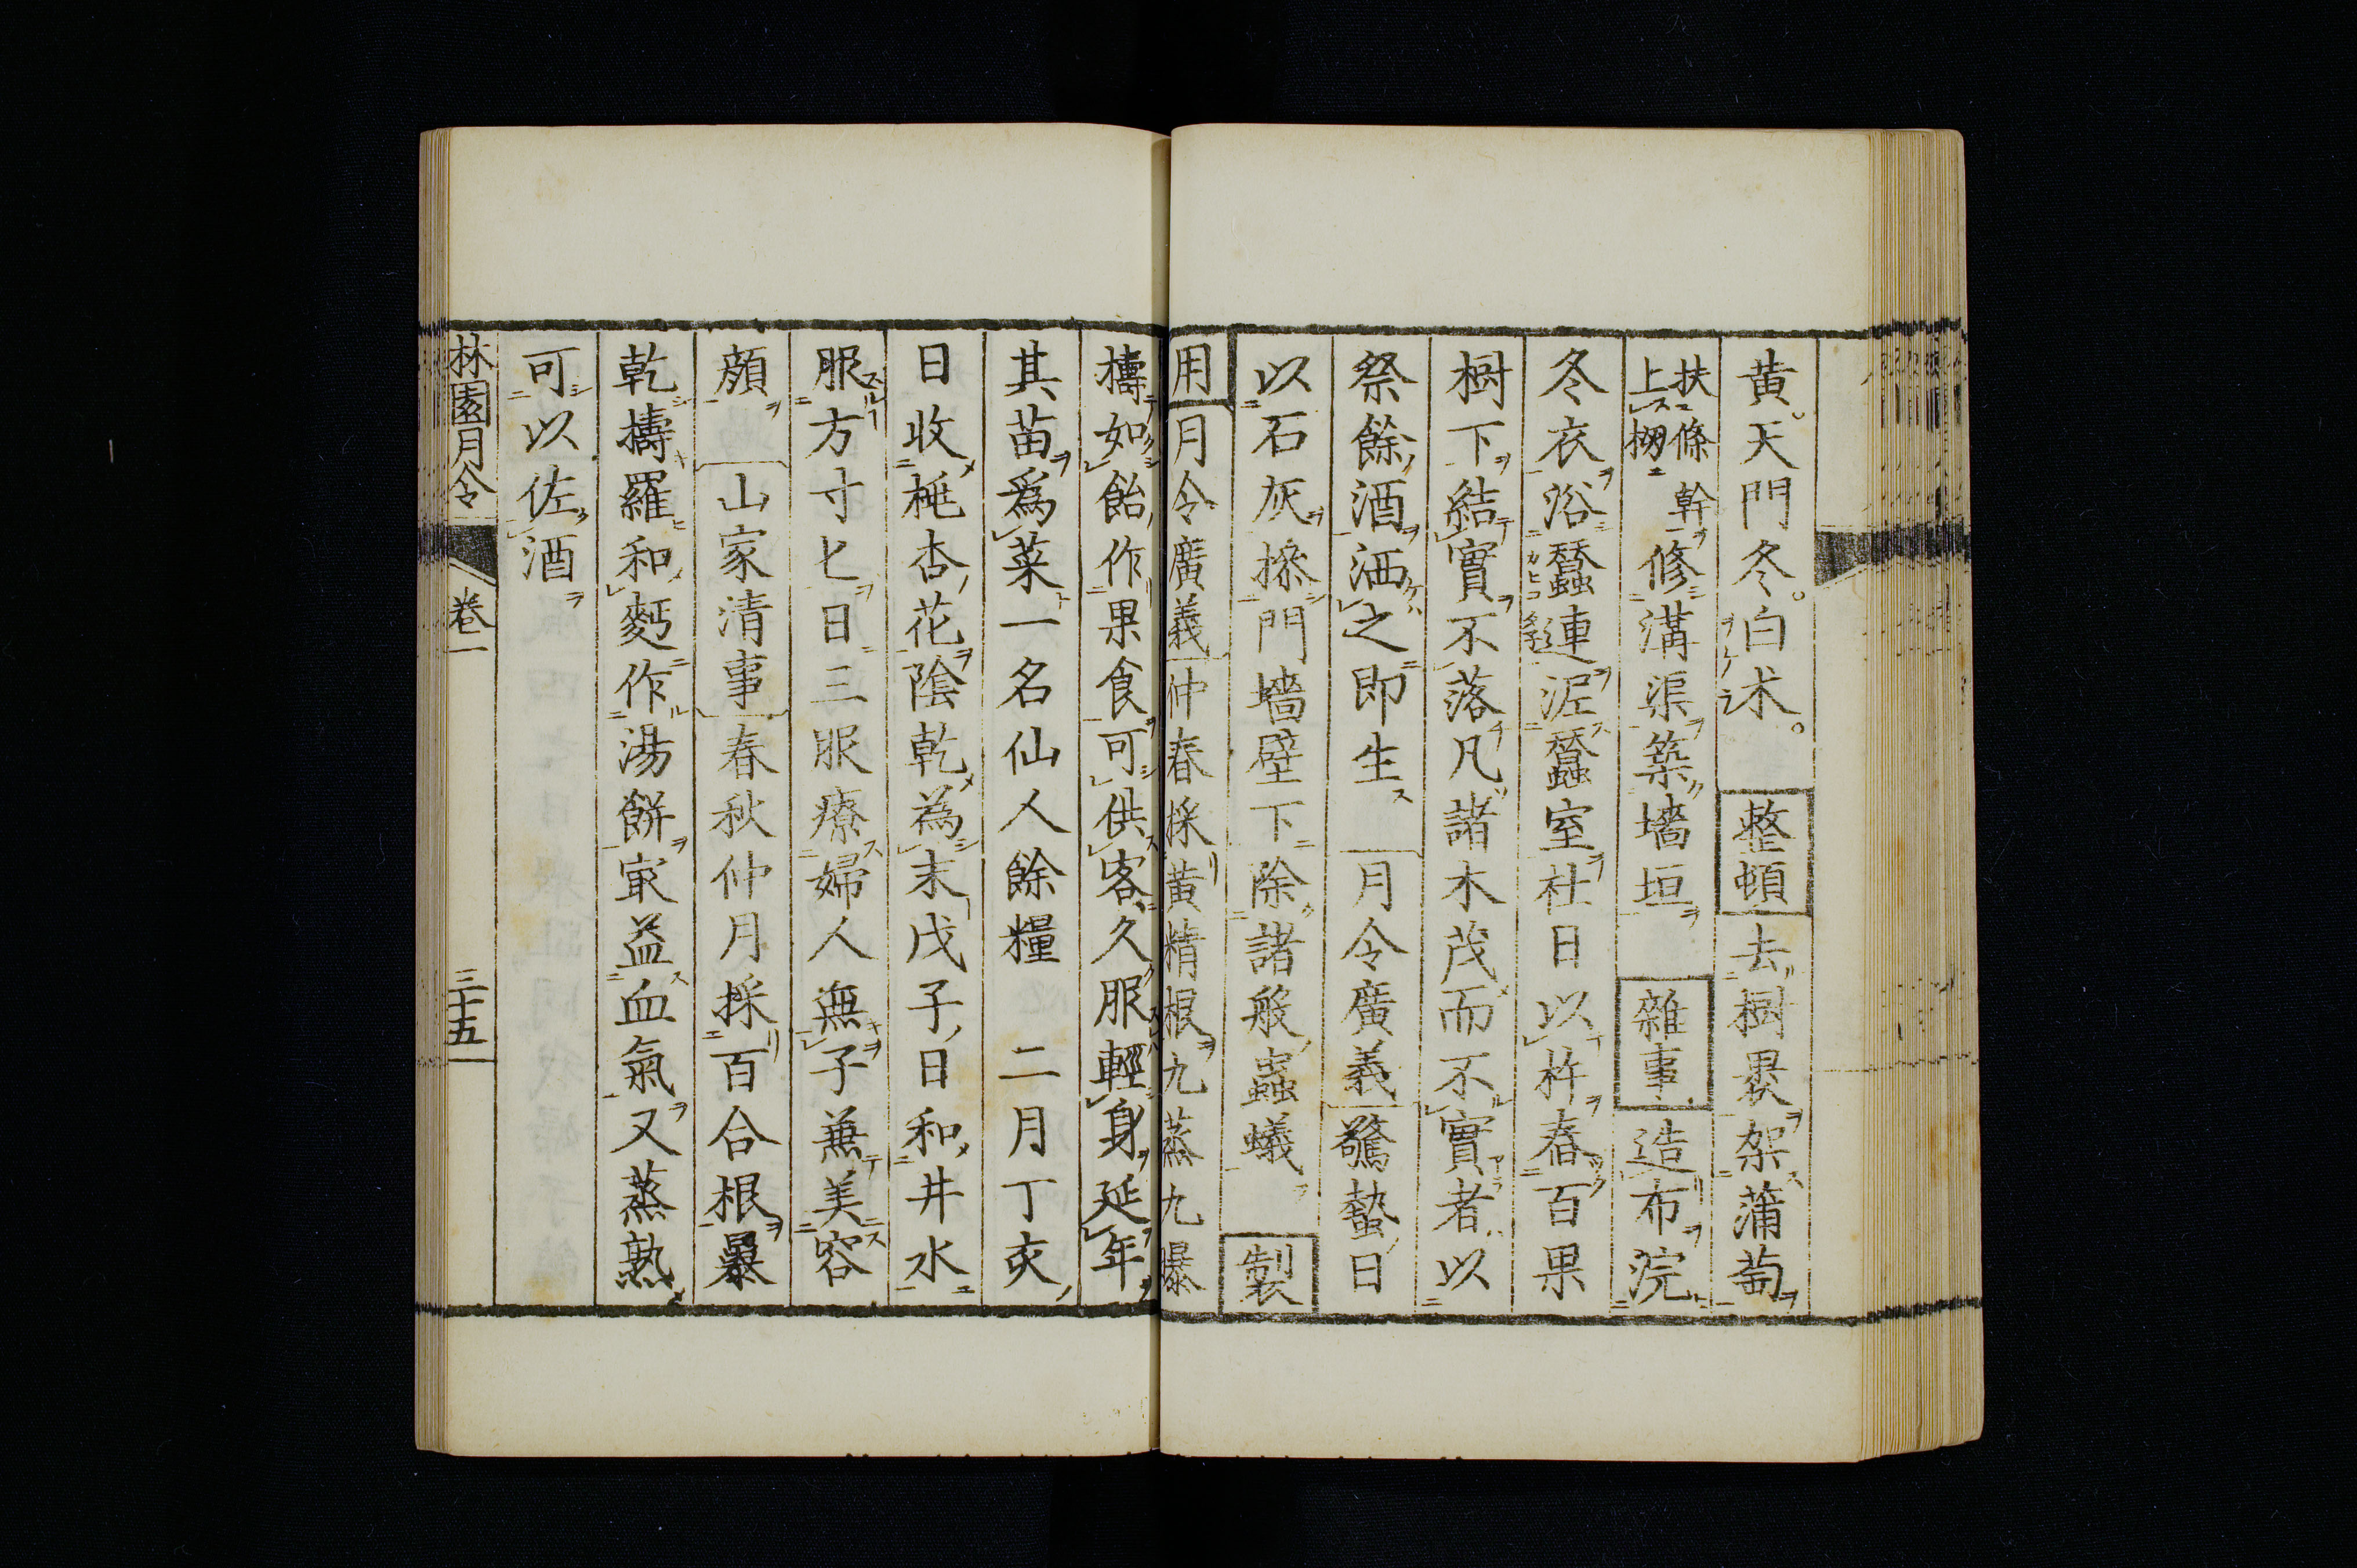 黄。天門冬。白朮。整頓去樹裹架蒲萄
扶條
上棚
幹修溝渠築墻垣雜事造布浣
冬衣浴蠶連泥蠶室社日以杵舂百果
樹下結實不落凡諸木茂而不實者以
祭餘酒洒之即生月令廣義驚蟄日
以石灰摻門墻壁下除諸般蟲蟻製
用月令廣義仲春採黄精根九蒸九暴
擣如飴作果食可供客久服輕身延年
其苗爲菜一名仙人餘糧二月丁亥
日收桃杏花陰乾為末戊子日和井水
服方寸匕日三服療婦人無子兼美容
顔山家清事春秋仲月採百合根暴
乾擣羅和麪作湯餅最益血氣又蒸熟
可以佐酒
林園月令 卷一 三十五